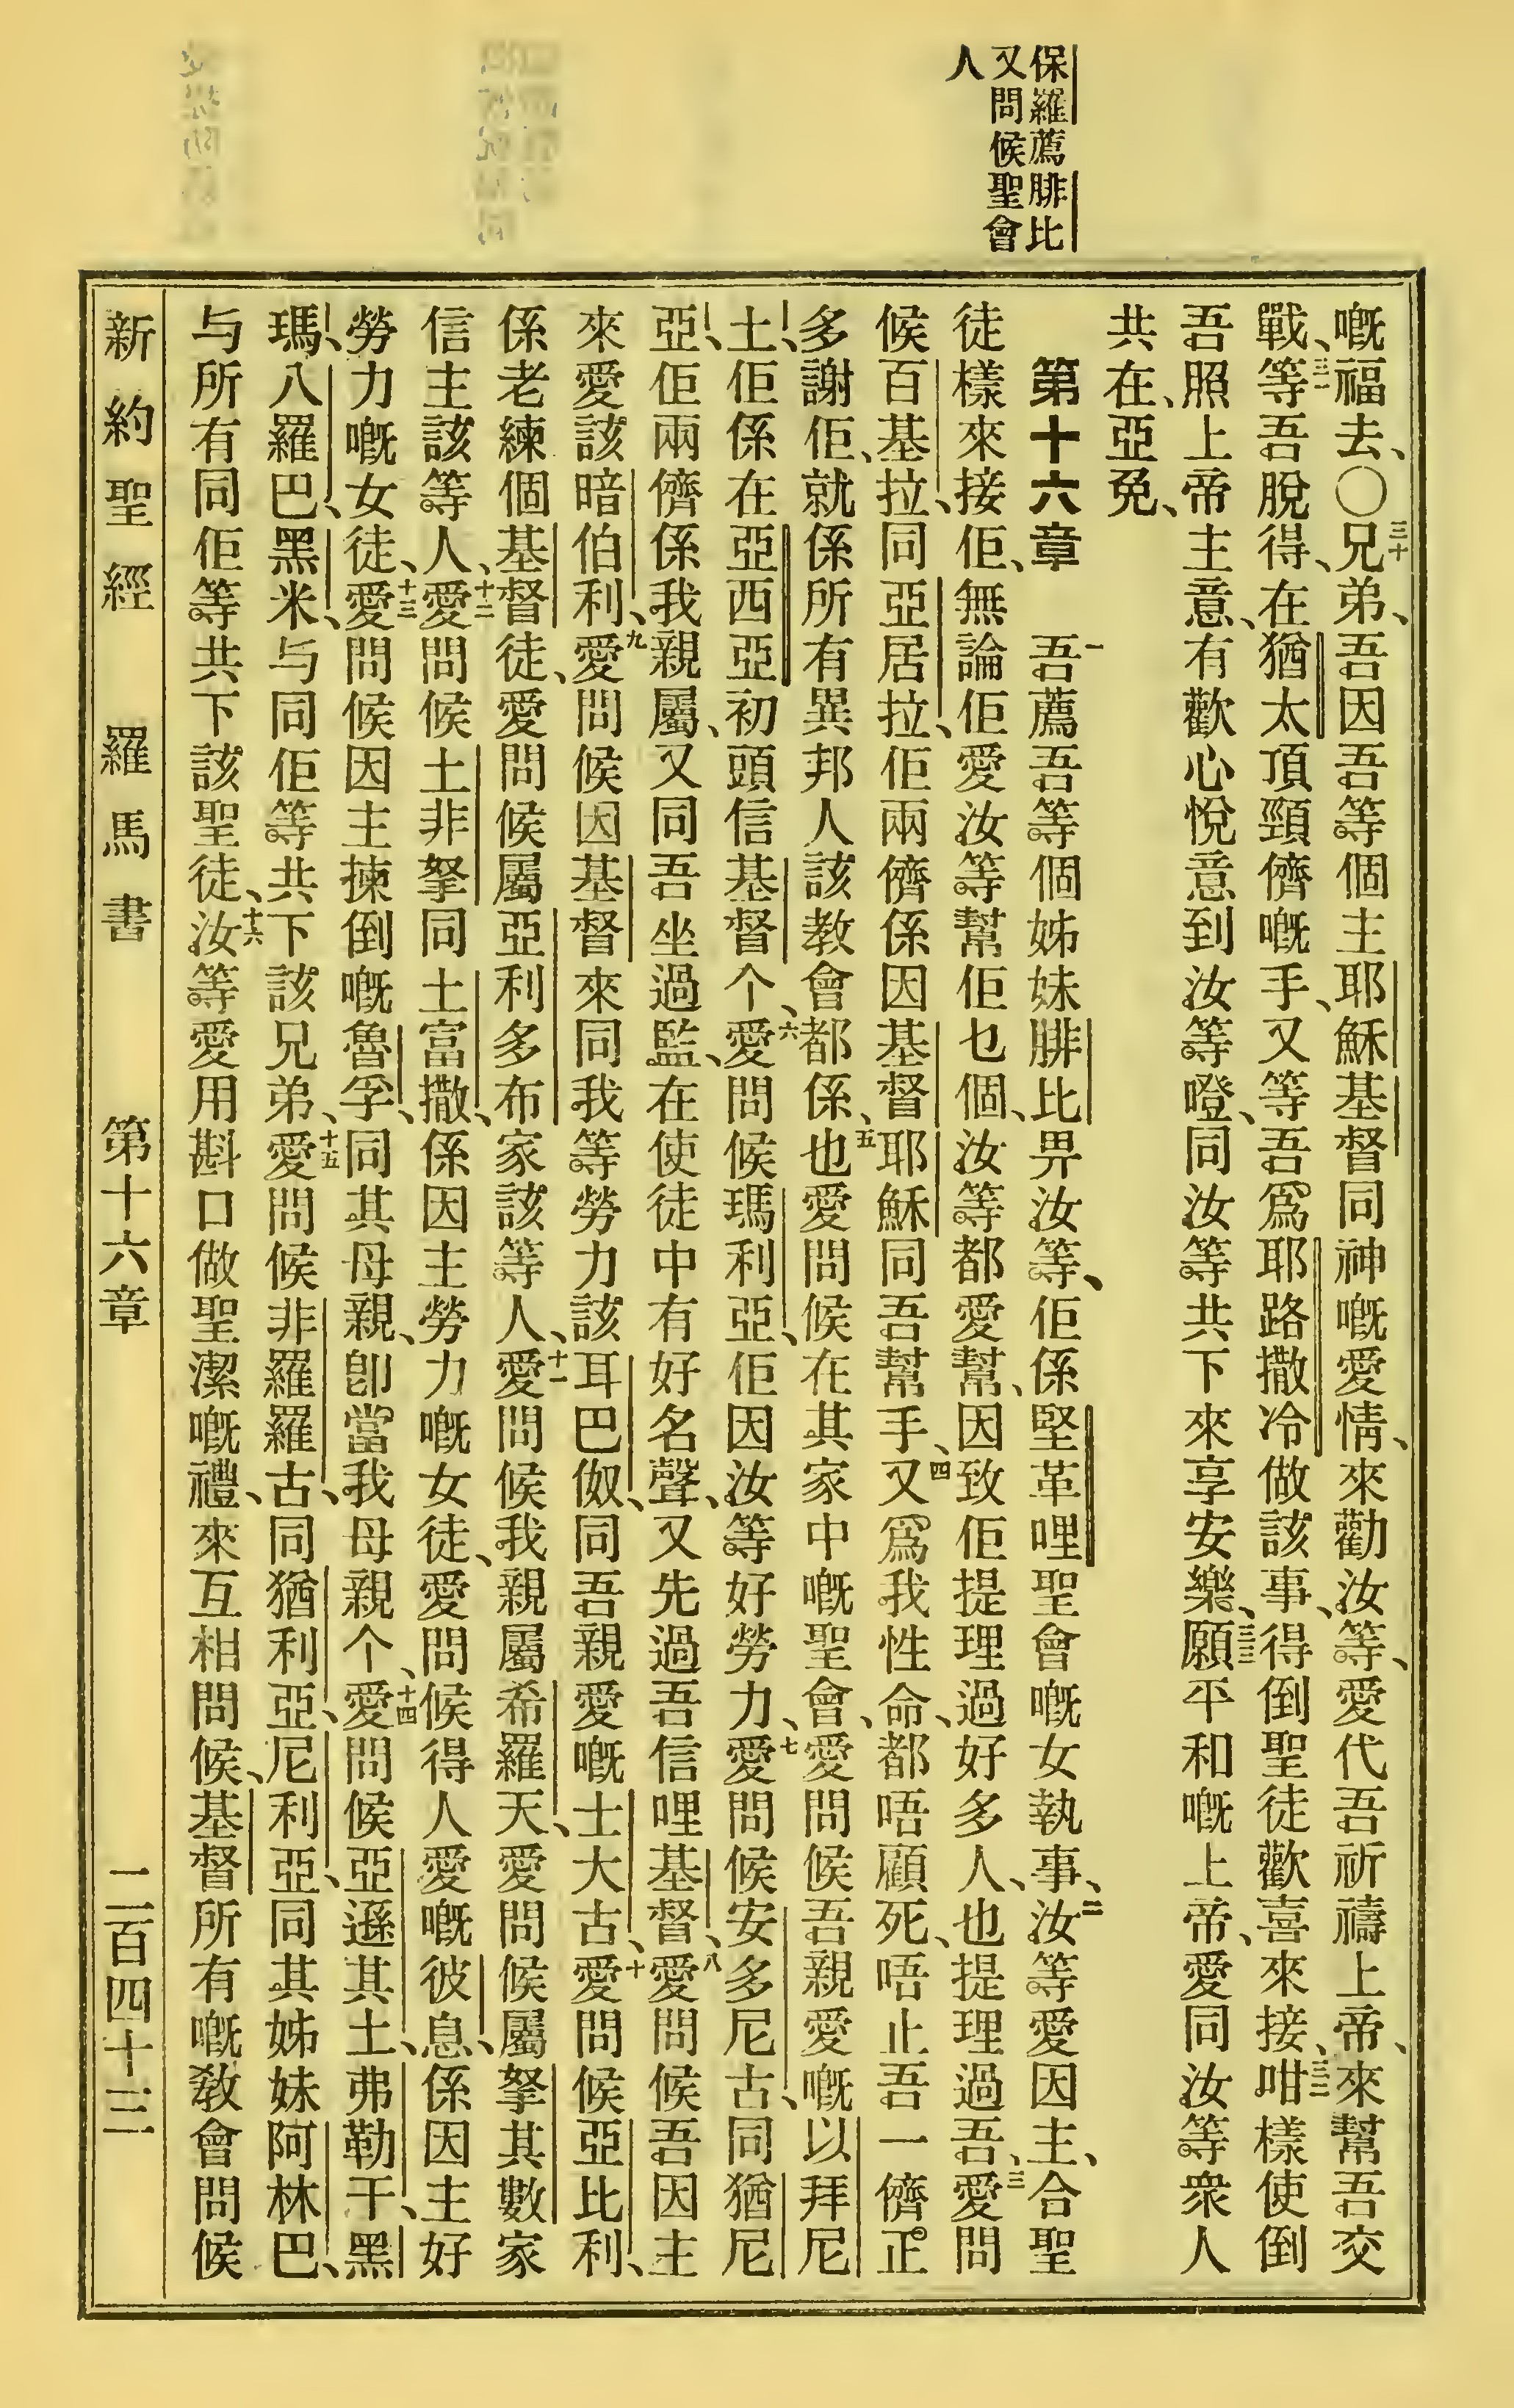 保羅薦腓比
又問候聖會
人
嘅福去、〇三十兄弟、吾因吾等個主耶穌基督同神嘅愛情、來勸汝等、愛代吾祈禱上帝、來幫吾交
戰、三一等吾脫得、在猶太頂頸儕嘅手、又等吾爲耶路撒冷做該事、得倒聖徒歡喜來接、三二咁樣使倒
吾照上帝主意、有歡心悅意到汝等嶝、同汝等共下來享安樂、三三願平和嘅上帝、愛同汝等衆人
共在、亞㝃、
第十六章　一吾薦吾等個姊妹腓比畀汝等、佢係堅革哩聖會嘅女執事、二汝等愛因主、合聖
徒樣來接佢、無論佢愛汝等幫佢乜個、汝等都愛幫、因致佢提理過好多人、也提理過吾、三愛問
候百基拉、同亞居拉、佢兩儕係因基督耶穌同吾幫手、四又爲我性命、都唔顧死、唔止吾一儕正
多謝佢、就係所有異邦人該教會都係、五也愛問候在其家中嘅聖會、愛問候吾親愛嘅以拜尼
土、佢係在亞西亞初頭信基督个、六愛問候瑪利亞、佢因汝等好勞力、七愛問候安多尼古、同猶尼
亞、佢兩儕係我親屬、又同吾坐過監、在使徒中有好名聲、又先過吾信哩基督、八愛問候吾因主
來愛該暗伯利、九愛問候因基督來同我等勞力該耳巴伮、同吾親愛嘅士大古、十愛問候亞比利、
係老練個基督徒、愛問候屬亞利多布家該等人、十一愛問候我親屬希羅天、愛問候屬拏其數家
信主該等人、十二愛問候土非拏同土富撒、係因主勞力嘅女徒、愛問候得人愛嘅彼息、係因主好
勞力嘅女徒、十三愛問候因主揀倒嘅魯孚、同其母親、卽當我母親个、十四愛問候亞遜其土、弗勒干、黑
瑪、八羅巴、黑米、与同佢等共下該兄弟、十五愛問候非羅羅古、同猶利亞、尼利亞、同其姊妹阿林巴、
与所有同佢等共下該聖徒、十六汝等愛用斟口做聖潔嘅禮、來互相問候、基督所有嘅教會問候
新約聖經　羅馬書　第十六章　二百四十三